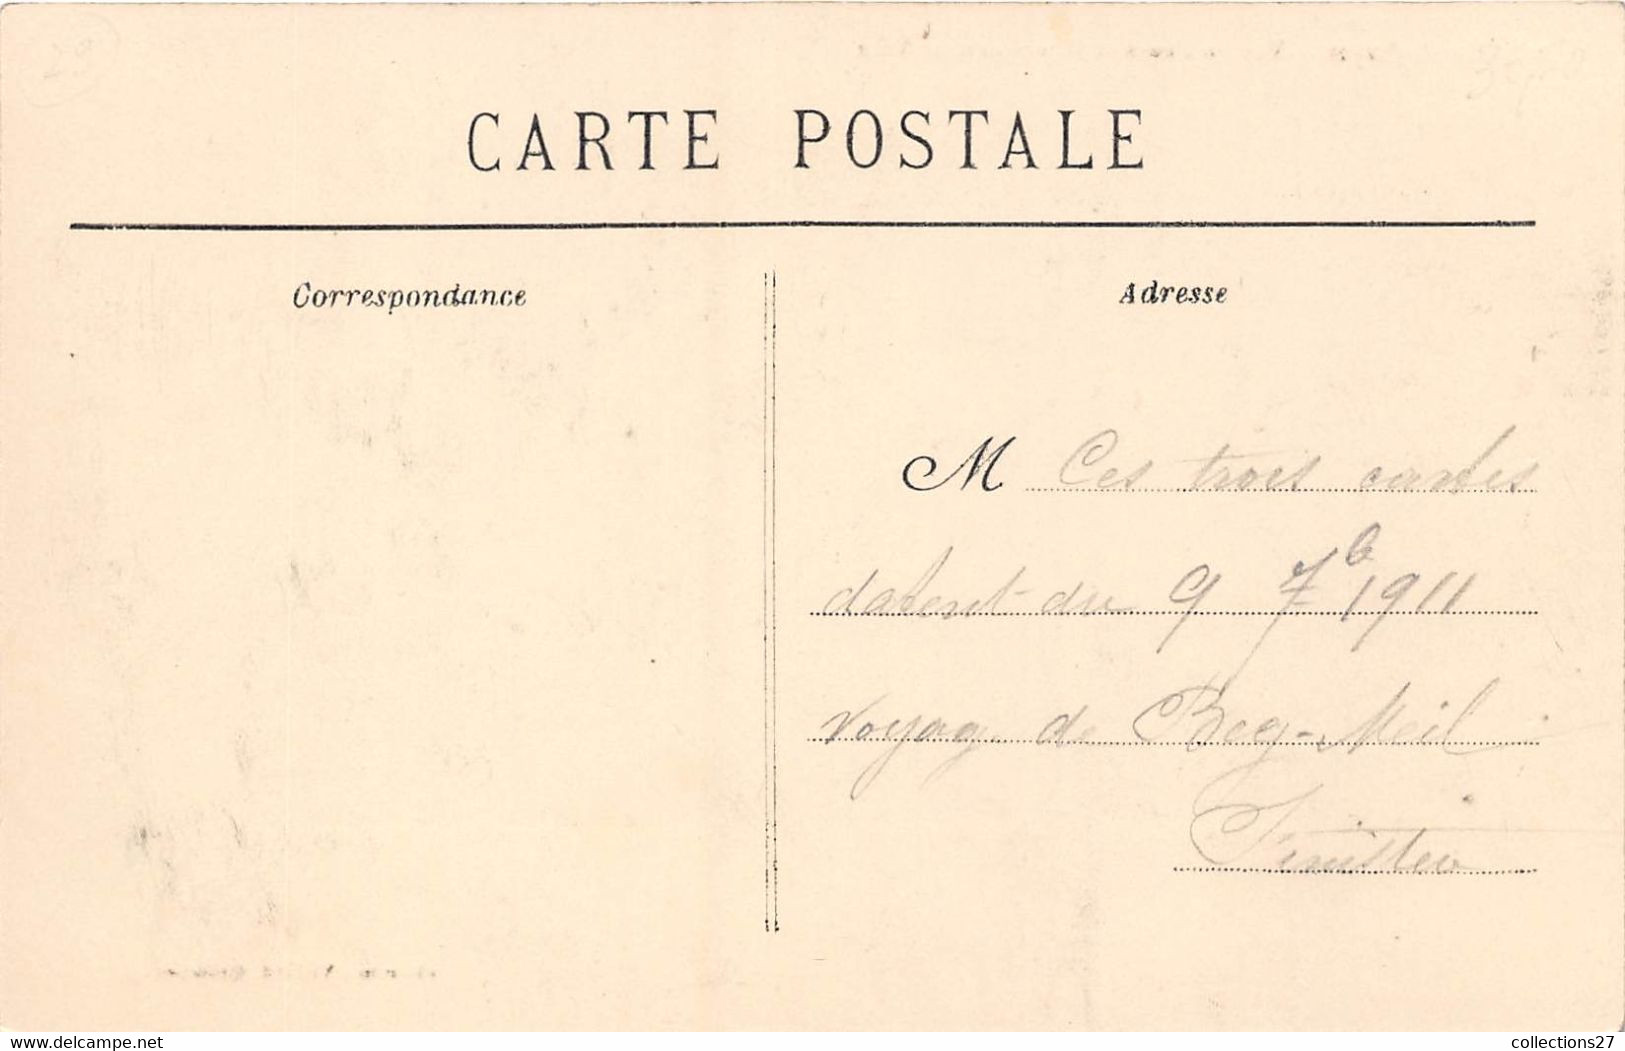 CARTE POSTALE
Correspondance
Adresse
M Ces trois cartes
datent du 9 7b 1911
voyag. de Beg-Meil
Finister
www.delcampe.net
collections27